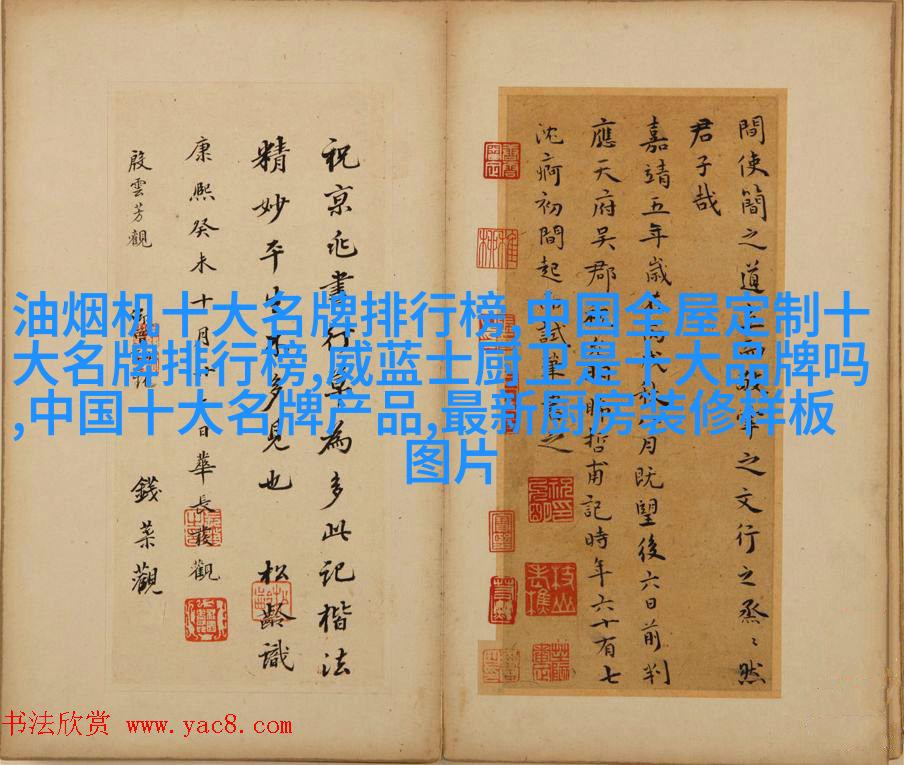 油烟机十大名牌排行榜,中国全屋定制十
大名牌排行榜,威蓝士厨卫是十大品牌吗
,中国十大名牌产品,最新厨房装修样板
图片
間使簡之道 而 之文行之烝〻然
君子哉
嘉靖五年歲 秋 月既望後六日前判
應天府吳郡 哲甫記時年六十有七
沈痾初間起 試筆 之
祝京兆書行草為多此記楷法
精妙平生 多見也 松齡識
康熙癸未十月 日華長發觀
殷雲芳觀
錢棻觀
书法欣赏 www.yac8.com